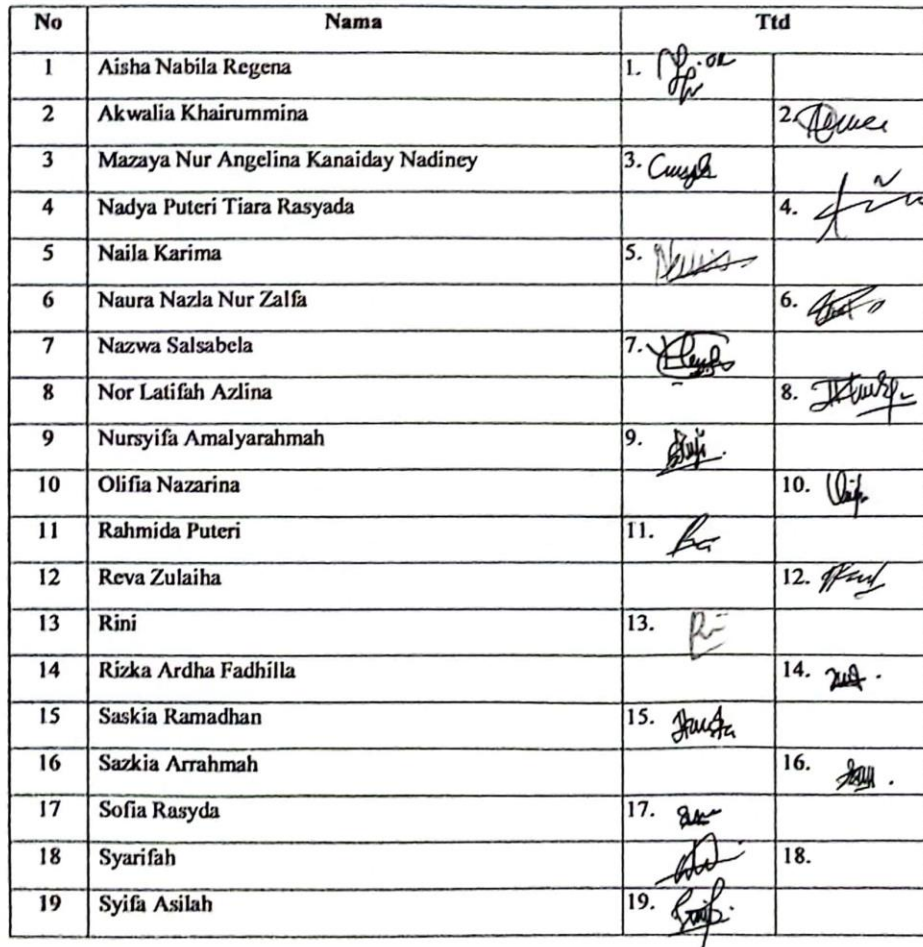 No Nama Ttd
1 Aisha Nabila Regena 1.
2 Akwalia Khairummina 2.
3 Mazaya Nur Angelina Kanaiday Nadiney 3.
4 Nadya Puteri Tiara Rasyada 4.
5 Naila Karima 5.
6 Naura Nazla Nur Zalfa 6.
7 Nazwa Salsabela 7.
8 Nor Latifah Azlina 8.
9 Nursyifa Amalyarahmah 9.
10 Olifia Nazarina 10.
11 Rahmida Puteri 11.
12 Reva Zulaiha 12.
13 Rini 13.
14 Rizka Ardha Fadhilla 14.
15 Saskia Ramadhan 15.
16 Sazkia Arrahmah 16.
17 Sofia Rasyda 17.
18 Syarifah 18.
19 Syifa Asilah 19.